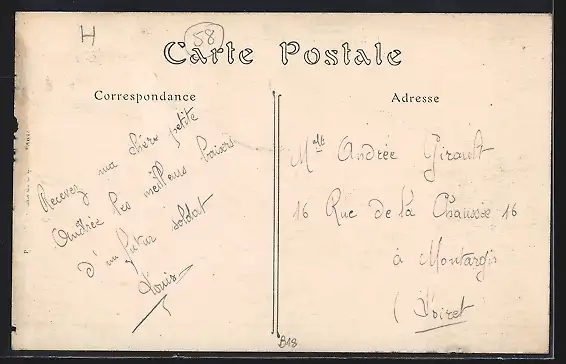 H
58
Carte Postale
Correspondance
Adresse
Recevez ma chère petite
Andrée les meilleurs baisers
d'un futur soldat
Louis
Melle Andrée Girault
16 Rue de la Chaussée 16
à Montargis
(Loiret
B18